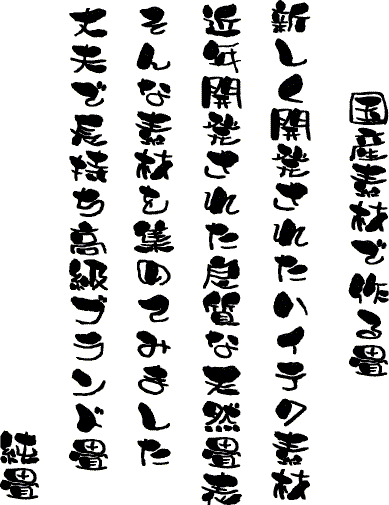 国産素材で作る畳
新しく開発されたハイテク素材
近年開発された良質な天然畳表
そんな素材を集めてみました
丈夫で長持ち高級ブランド畳
純畳